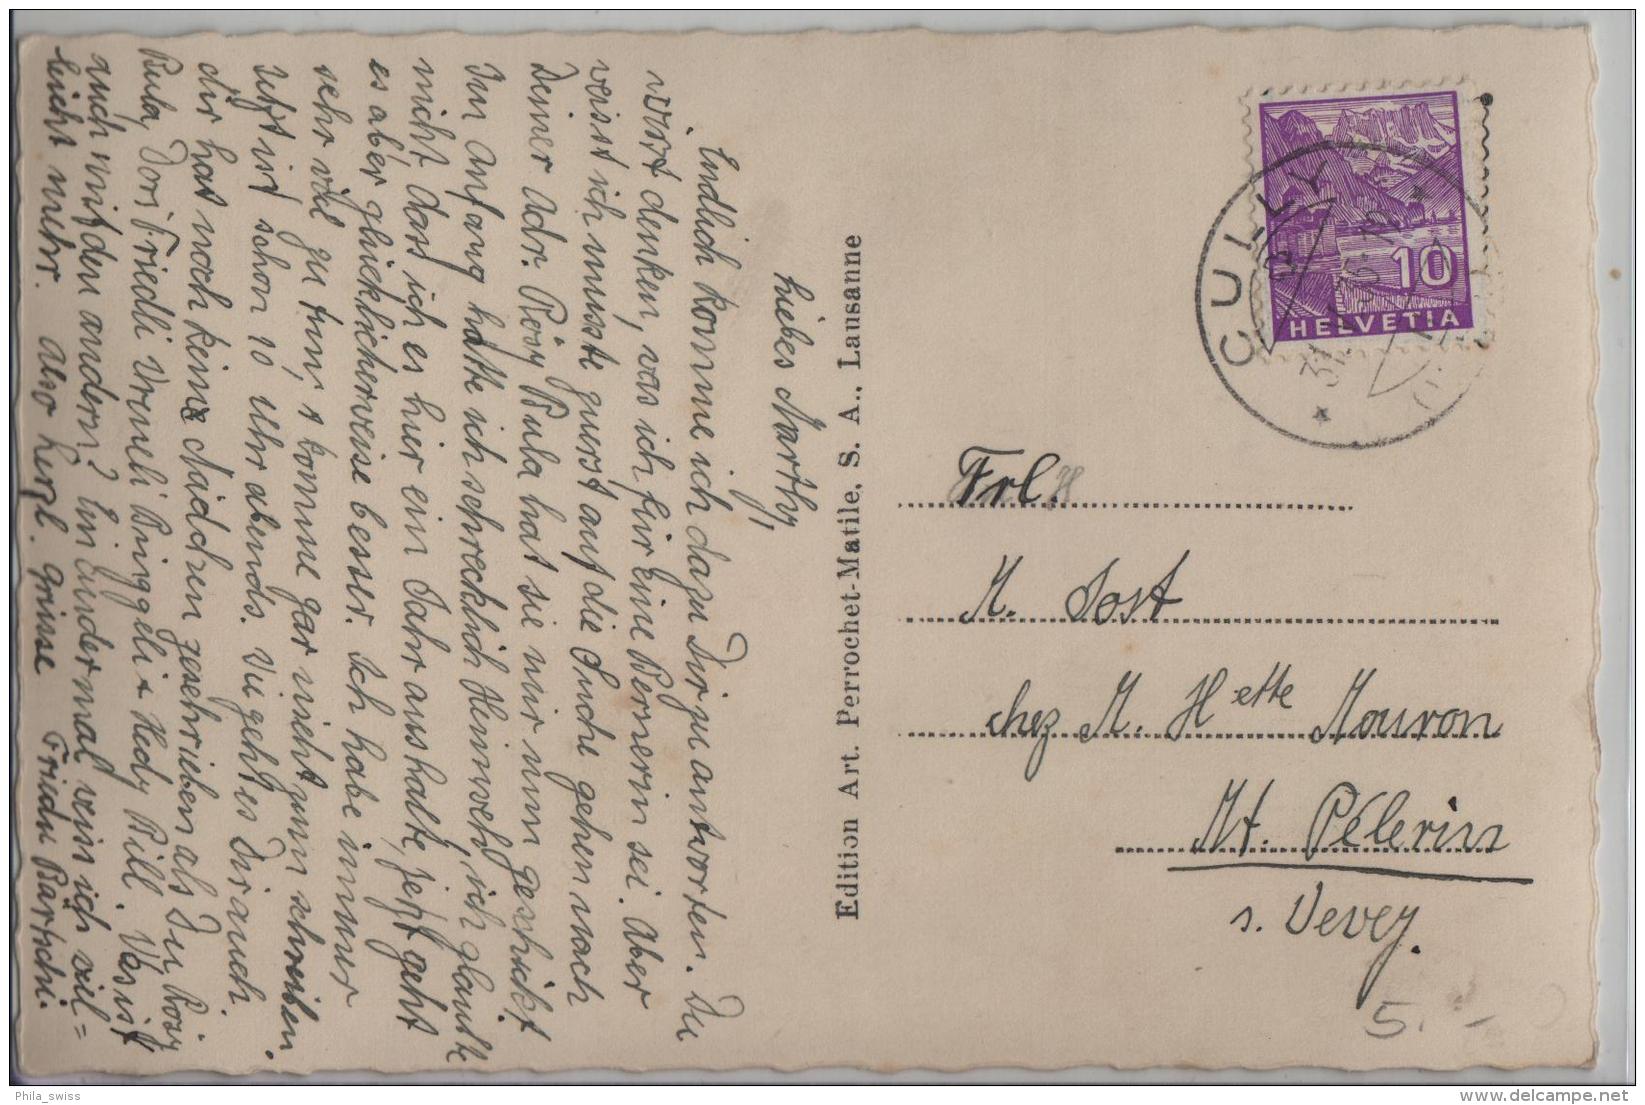 Liebes Marthy,
Endlich komme ich dazu Dir zu antworten. Du
wirst denken, was ich für eine Bernerin sei. Aber
weisst ich musste zuerst auf die Suche gehen nach
Deiner Adr. Rösy Bula hat sie mir nun geschickt
Im Anfang hatte ich schrecklich Heimweh, ich glaubte
nicht, dass ich es hier ein Jahr aushalte, jetzt geht
es aber glücklicherweise besser. Ich habe immer
sehr viel zu tun, s komme gar nicht zum schreiben.
Jetzt ist schon 10 Uhr abends. Wie geht es Dir auch
dir hat noch keine Mädchen geschrieben als Du, Rösy
Bula, Dori Friedli Vreneli Binggeli + Hedy Rill. Was ist
auch mit den andern? Ein andermal wein ich viel=
leicht mehr. Also herzl. Grüsse Frieda Bärtschi.
Edition Art. Perrochet-Matile, S. A., Lausanne
CULLY
HELVETIA
10
Frl.
M. Jost
chez M. Hette Mouron
Mt. Pélerin
s. Vevey.
5.-
Phila_swiss